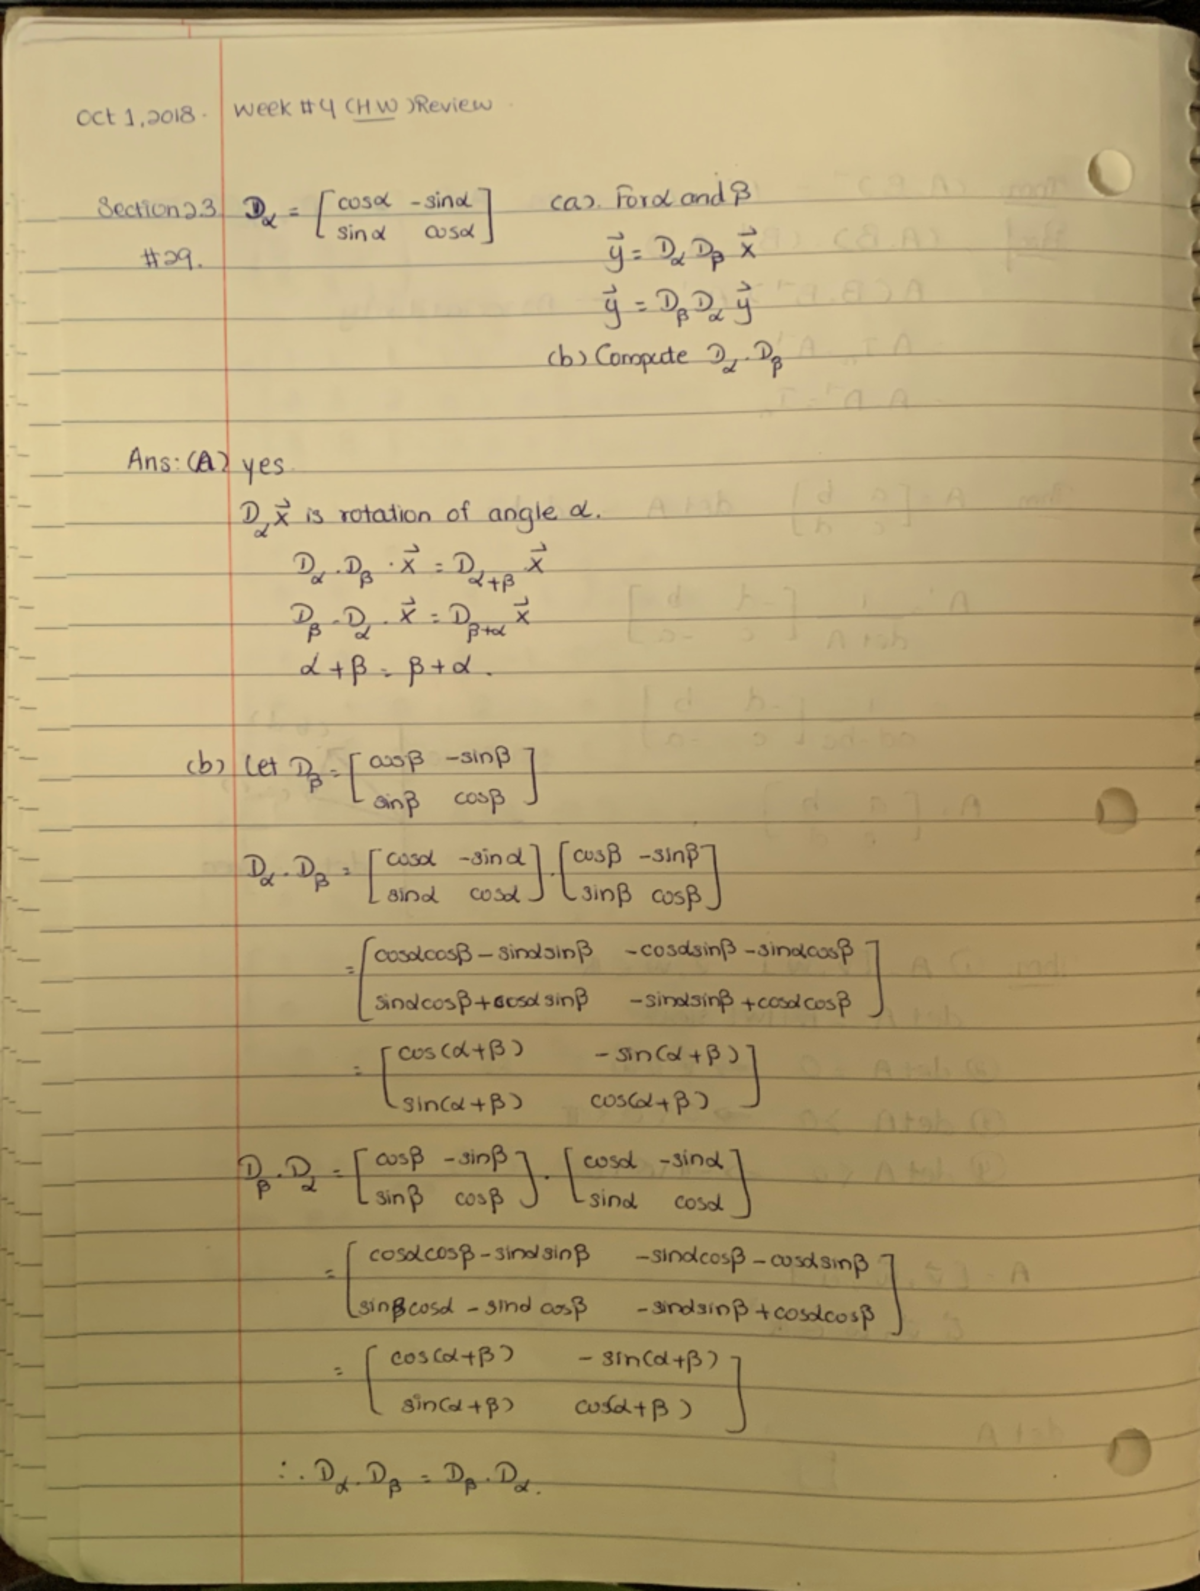 Oct 1, 2018. Week #4 (HW) Review.
Section 2.3 D_α = [cosα -sinα] (a). For α and β
[sinα cosα]
#29. y⃗ = D_α D_β x⃗
y⃗ = D_β D_α y⃗
(b) Compute D_α · D_β
Ans: (A) yes.
D_α x⃗ is rotation of angle α.
D_α · D_β · x⃗ = D_α+β x⃗
D_β · D_α · x⃗ = D_β+α x⃗
α + β = β + α.
(b) Let D_β = [cosβ -sinβ]
[sinβ cosβ]
D_α · D_β = [cosα -sinα] · [cosβ -sinβ]
[sinα cosα] [sinβ cosβ]
= [cosαcosβ - sinαsinβ -cosαsinβ - sinαcosβ]
[sinαcosβ + cosαsinβ -sinαsinβ + cosαcosβ]
= [cos(α+β) -sin(α+β)]
[sin(α+β) cos(α+β)]
D_β · D_α = [cosβ -sinβ] · [cosα -sinα]
[sinβ cosβ] [sinα cosα]
= [cosαcosβ - sinαsinβ -sinαcosβ - cosαsinβ]
[sinβcosα - sinαcosβ -sinαsinβ + cosαcosβ]
= [cos(α+β) -sin(α+β)]
[sin(α+β) cos(α+β)]
∴ D_α · D_β = D_β · D_α.